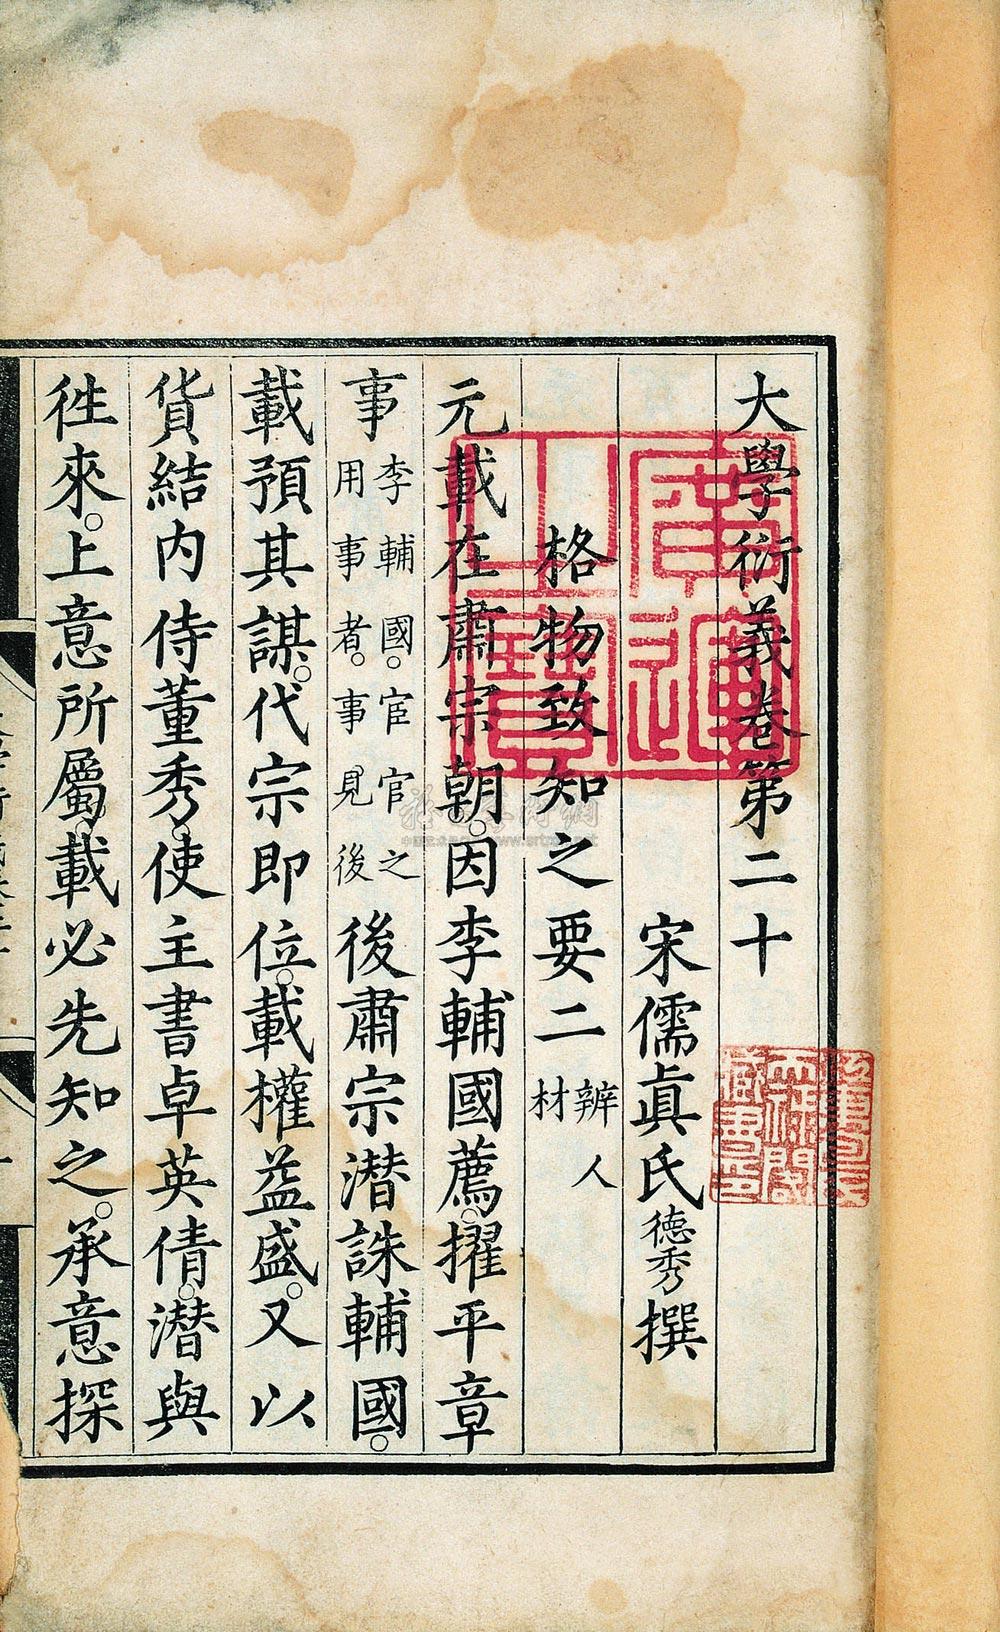 大學衍義卷第二十
宋儒眞氏德秀撰
格物致知之要二辨人材
元載在肅宗朝。因李輔國薦。擢平章
事李輔國。宦官之用事者。事見後後肅宗潛誅輔國。
載預其謀。代宗即位。載權益盛。又以
貨結內侍董秀。使主書卓英倩。潛與
徃來。上意所屬。載必先知之。承意探